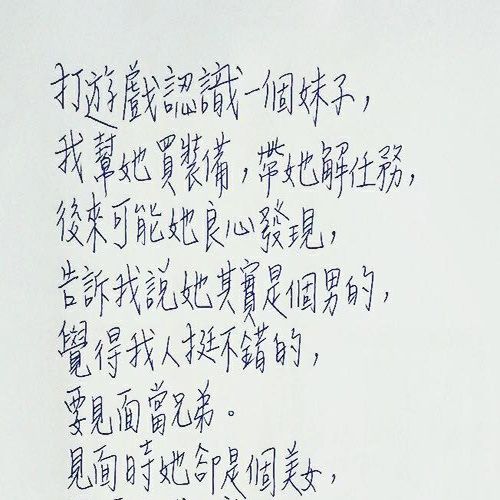 打遊戲認識一個妹子，
我幫她買裝備，帶她解任務，
後來可能她良心發現，
告訴我說她其實是個男的，
覺得我人挺不錯的，
要見面當兄弟。
見面時她卻是個美女，